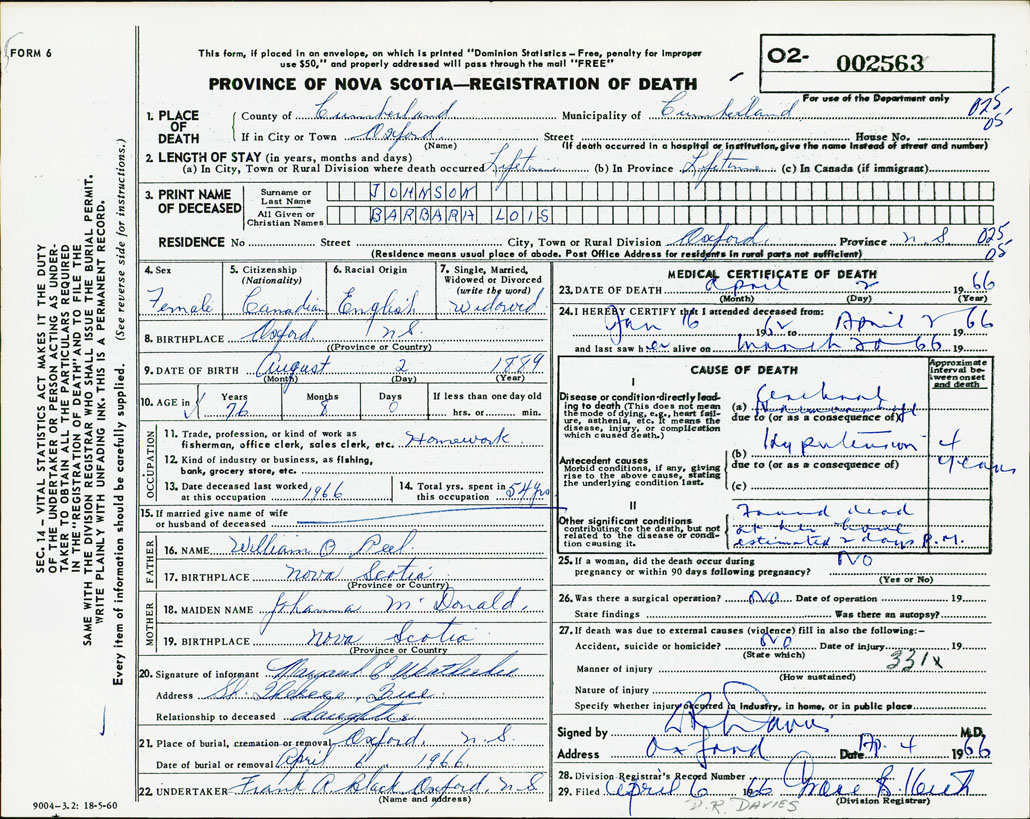 FORM 6
This form, if placed in an envelope, on which is printed "Dominion Statistics – Free, penalty for improper
use $50," and properly addressed will pass through the mail "FREE"
PROVINCE OF NOVA SCOTIA—REGISTRATION OF DEATH
O2- 002563
For use of the Department only
1. PLACE OF DEATH County of Cumberland Municipality of Cumberland 025
If in City or Town Oxford Street House No. 05
(Name) (If death occurred in a hospital or institution, give the name instead of street and number)
2. LENGTH OF STAY (in years, months and days)
(a) In City, Town or Rural Division where death occurred Lifetime (b) In Province Lifetime (c) In Canada (if immigrant)
3. PRINT NAME OF DECEASED
Surname or Last Name JOHNSON
All Given or Christian Names BARBARA LOIS
RESIDENCE No Street City, Town or Rural Division Oxford, Province N.S 025
(Residence means usual place of abode. Post Office Address for residents in rural parts not sufficient) 05
4. Sex Female
5. Citizenship (Nationality) Canadian
6. Racial Origin English
7. Single, Married, Widowed or Divorced (write the word) Widowed
8. BIRTHPLACE Oxford, N.S.
(Province or Country)
9. DATE OF BIRTH August 2 1889
(Month) (Day) (Year)
10. AGE in Years 76 Months 8 Days 0 If less than one day old
hrs. or min.
OCCUPATION
11. Trade, profession, or kind of work as
fisherman, office clerk, sales clerk, etc. Homework
12. Kind of industry or business, as fishing,
bank, grocery store, etc.
13. Date deceased last worked at this occupation 1966
14. Total yrs. spent in this occupation 54 yrs
15. If married give name of wife
or husband of deceased
FATHER
16. NAME William O. Peel
17. BIRTHPLACE Nova Scotia
(Province or Country)
MOTHER
18. MAIDEN NAME Johanna McDonald,
19. BIRTHPLACE Nova Scotia
(Province or Country)
20. Signature of informant Margaret E
Address St. Therese,
Relationship to deceased daughter
21. Place of burial, cremation or removal Oxford, N.S.
Date of burial or removal April 6, 1966.
22. UNDERTAKER Frank A Black Oxford, N S
(Name and address)
9004-3.2: 18-5-60
MEDICAL CERTIFICATE OF DEATH
23. DATE OF DEATH April 2 1966
(Month) (Day) (Year)
24. I HEREBY CERTIFY that I attended deceased from:
Jan 16 19 to April 2 66
and last saw her alive on March 20 66 19
CAUSE OF DEATH
Approximate interval between onset and death
I
Disease or condition directly leading to death (This does not mean the mode of dying, e.g., heart failure, asthenia, etc. It means the disease, injury, or complication which caused death.)
(a) Cerebral
due to (or as a consequence of)
Antecedent causes
Morbid conditions, if any, giving rise to the above cause, stating the underlying condition last.
(b) Hypertension 4 years
due to (or as a consequence of)
(c)
II
Other significant conditions
contributing to the death, but not related to the disease or condition causing it.
Found dead
at her home
estimated 2 days P.M.
25. If a woman, did the death occur during
pregnancy or within 90 days following pregnancy? NO
(Yes or No)
26. Was there a surgical operation? NO Date of operation 19
State findings Was there an autopsy?
27. If death was due to external causes (violence) fill in also the following:–
Accident, suicide or homicide? NO Date of injury 19
(State which)
Manner of injury 331x
(How sustained)
Nature of injury
Specify whether injury occurred in industry, in home, or in public place
Signed by D R Davies M.D.
Address Oxford Date Ap. 4 1966
28. Division Registrar's Record Number
29. Filed April 6 1966
(Division Registrar)
D.R. DAVIES
SEC. 14 – VITAL STATISTICS ACT MAKES IT THE DUTY
OF THE UNDERTAKER OR PERSON ACTING AS UNDER-
TAKER TO OBTAIN ALL THE PARTICULARS REQUIRED
IN THE "REGISTRATION OF DEATH" AND TO FILE THE
SAME WITH THE DIVISION REGISTRAR WHO SHALL ISSUE THE BURIAL PERMIT.
WRITE PLAINLY WITH UNFADING INK. THIS IS A PERMANENT RECORD.
Every item of information should be carefully supplied. (See reverse side for instructions.)